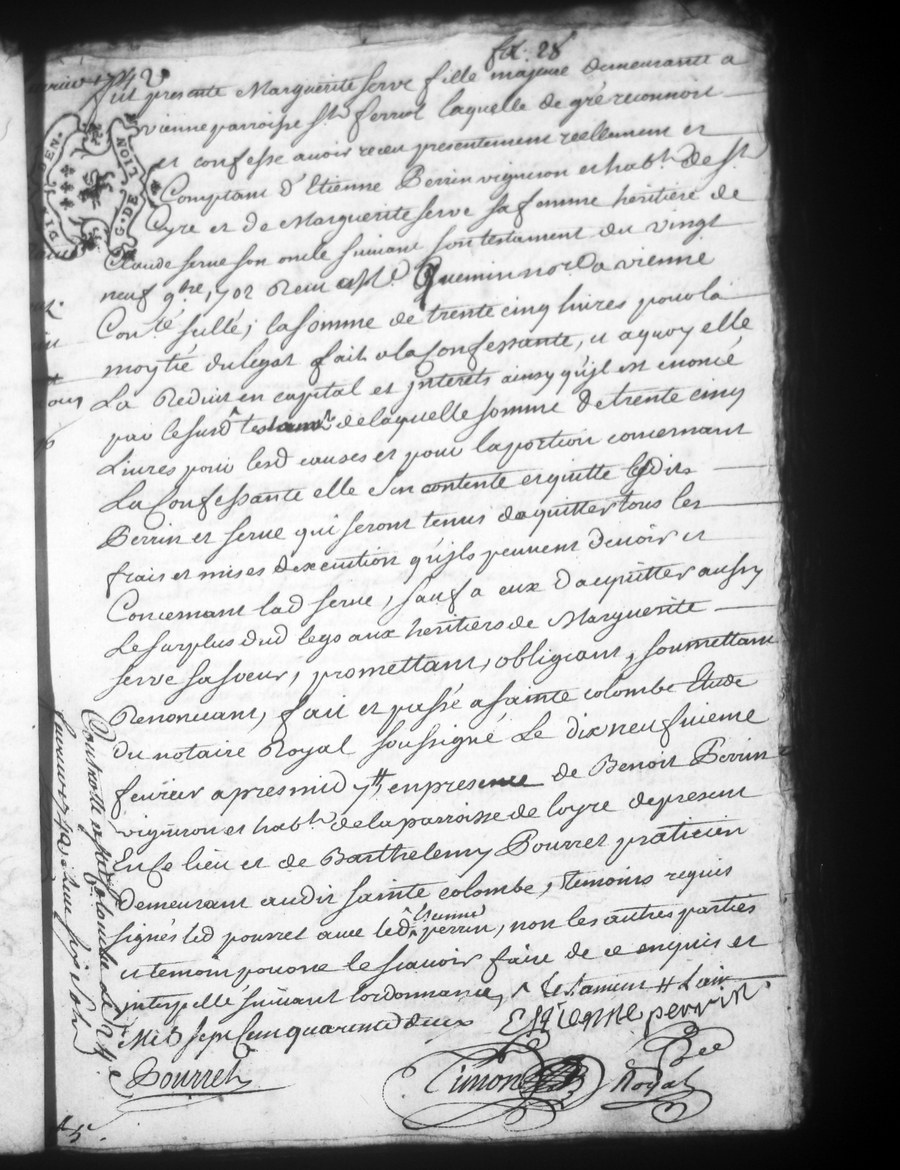 fol: 28
Fut presente Marguerite Serve fille majeure demeurante a
vienne parroisse St. ferreol laquelle de gré reconnoit
et confesse avoir receu presentement reellement et
Comptant d'Etienne Perrin vigneron et habt. de St
Cyre et de Marguerite Serve sa femme heritière de
Claude Serve son oncle suivant son testament du vingt
neuf 9bre 1702 Receu Me Guemin no.re a vienne
Con.lé scellé; la somme de trente cinq livres pour la
moytié du legat fait a la Confessante, et a quoy elle
La Reduit en capital et interets ainsy qu'il est enoncé
par le susd testamt de laquelle somme de trente cinq
Livres pour lesd causes et pour la portion concernant
La Confessante elle s'en contente et quitte lesdits
Perrin et serve qui seront tenus d'aquitter tous les
frais et mises d'execution qu'ils peuvent devoir et
Concernant lad serve, sauf a eux d'acquitter aussy
Le surplus dud legs aux heritiers de Marguerite
serve sa soeur, promettant, obligeant, soumettant
Renoncant, fait et passé a sainte colombe Etude
Du notaire Royal soussigné Le dixneufvieme
fevrier apres midy # en presence de Benoit Perrin
vigneron et habt. de la parroisse de loyre de present
En Ce lieu et de Barthelemy Pourret praticien
Demeurant audit sainte colombe, temoins requis
signés led pourret avec led Etienne perrin, non les autres parties
et temoin pour ne le scavoir faire de ce enquis et
interpellé suivant l'ordonnance, ^ testament # l'an
Mil sept cent quarente deux
Estienne perrin
Pourret
Timon
Royal
DE
G. DE